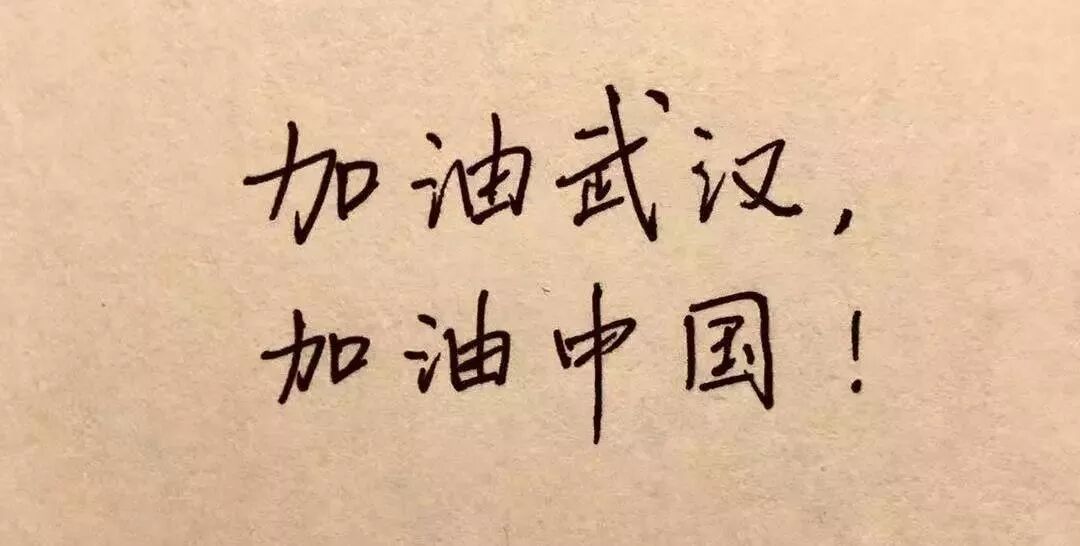 加油武汉,
加油中国!